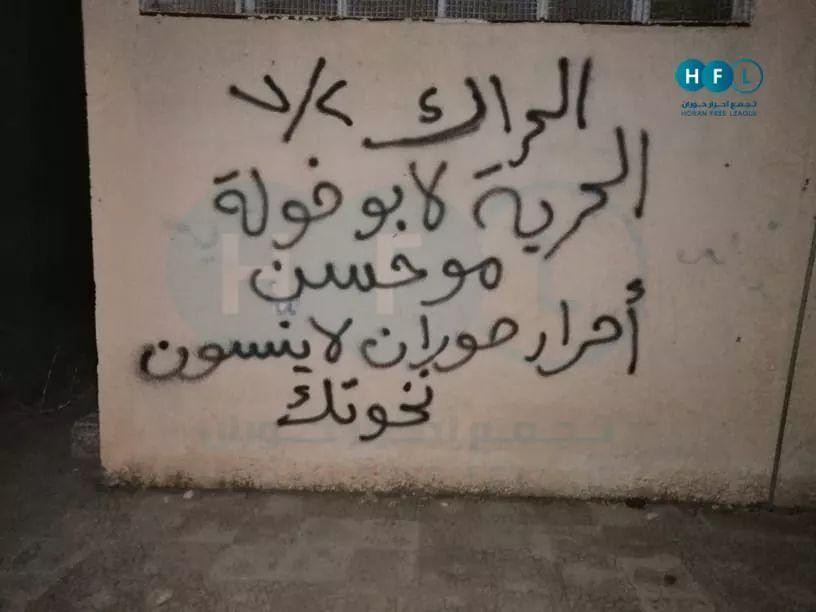 HFL
تجمع احرار حوران
HORAN FREE LEAGUE
الحراك ٧/٢
الحرية لابو خولة
موحسن
أحرار حوران لا ينسون
نخوتك
HFL
تجمع احرار حوران